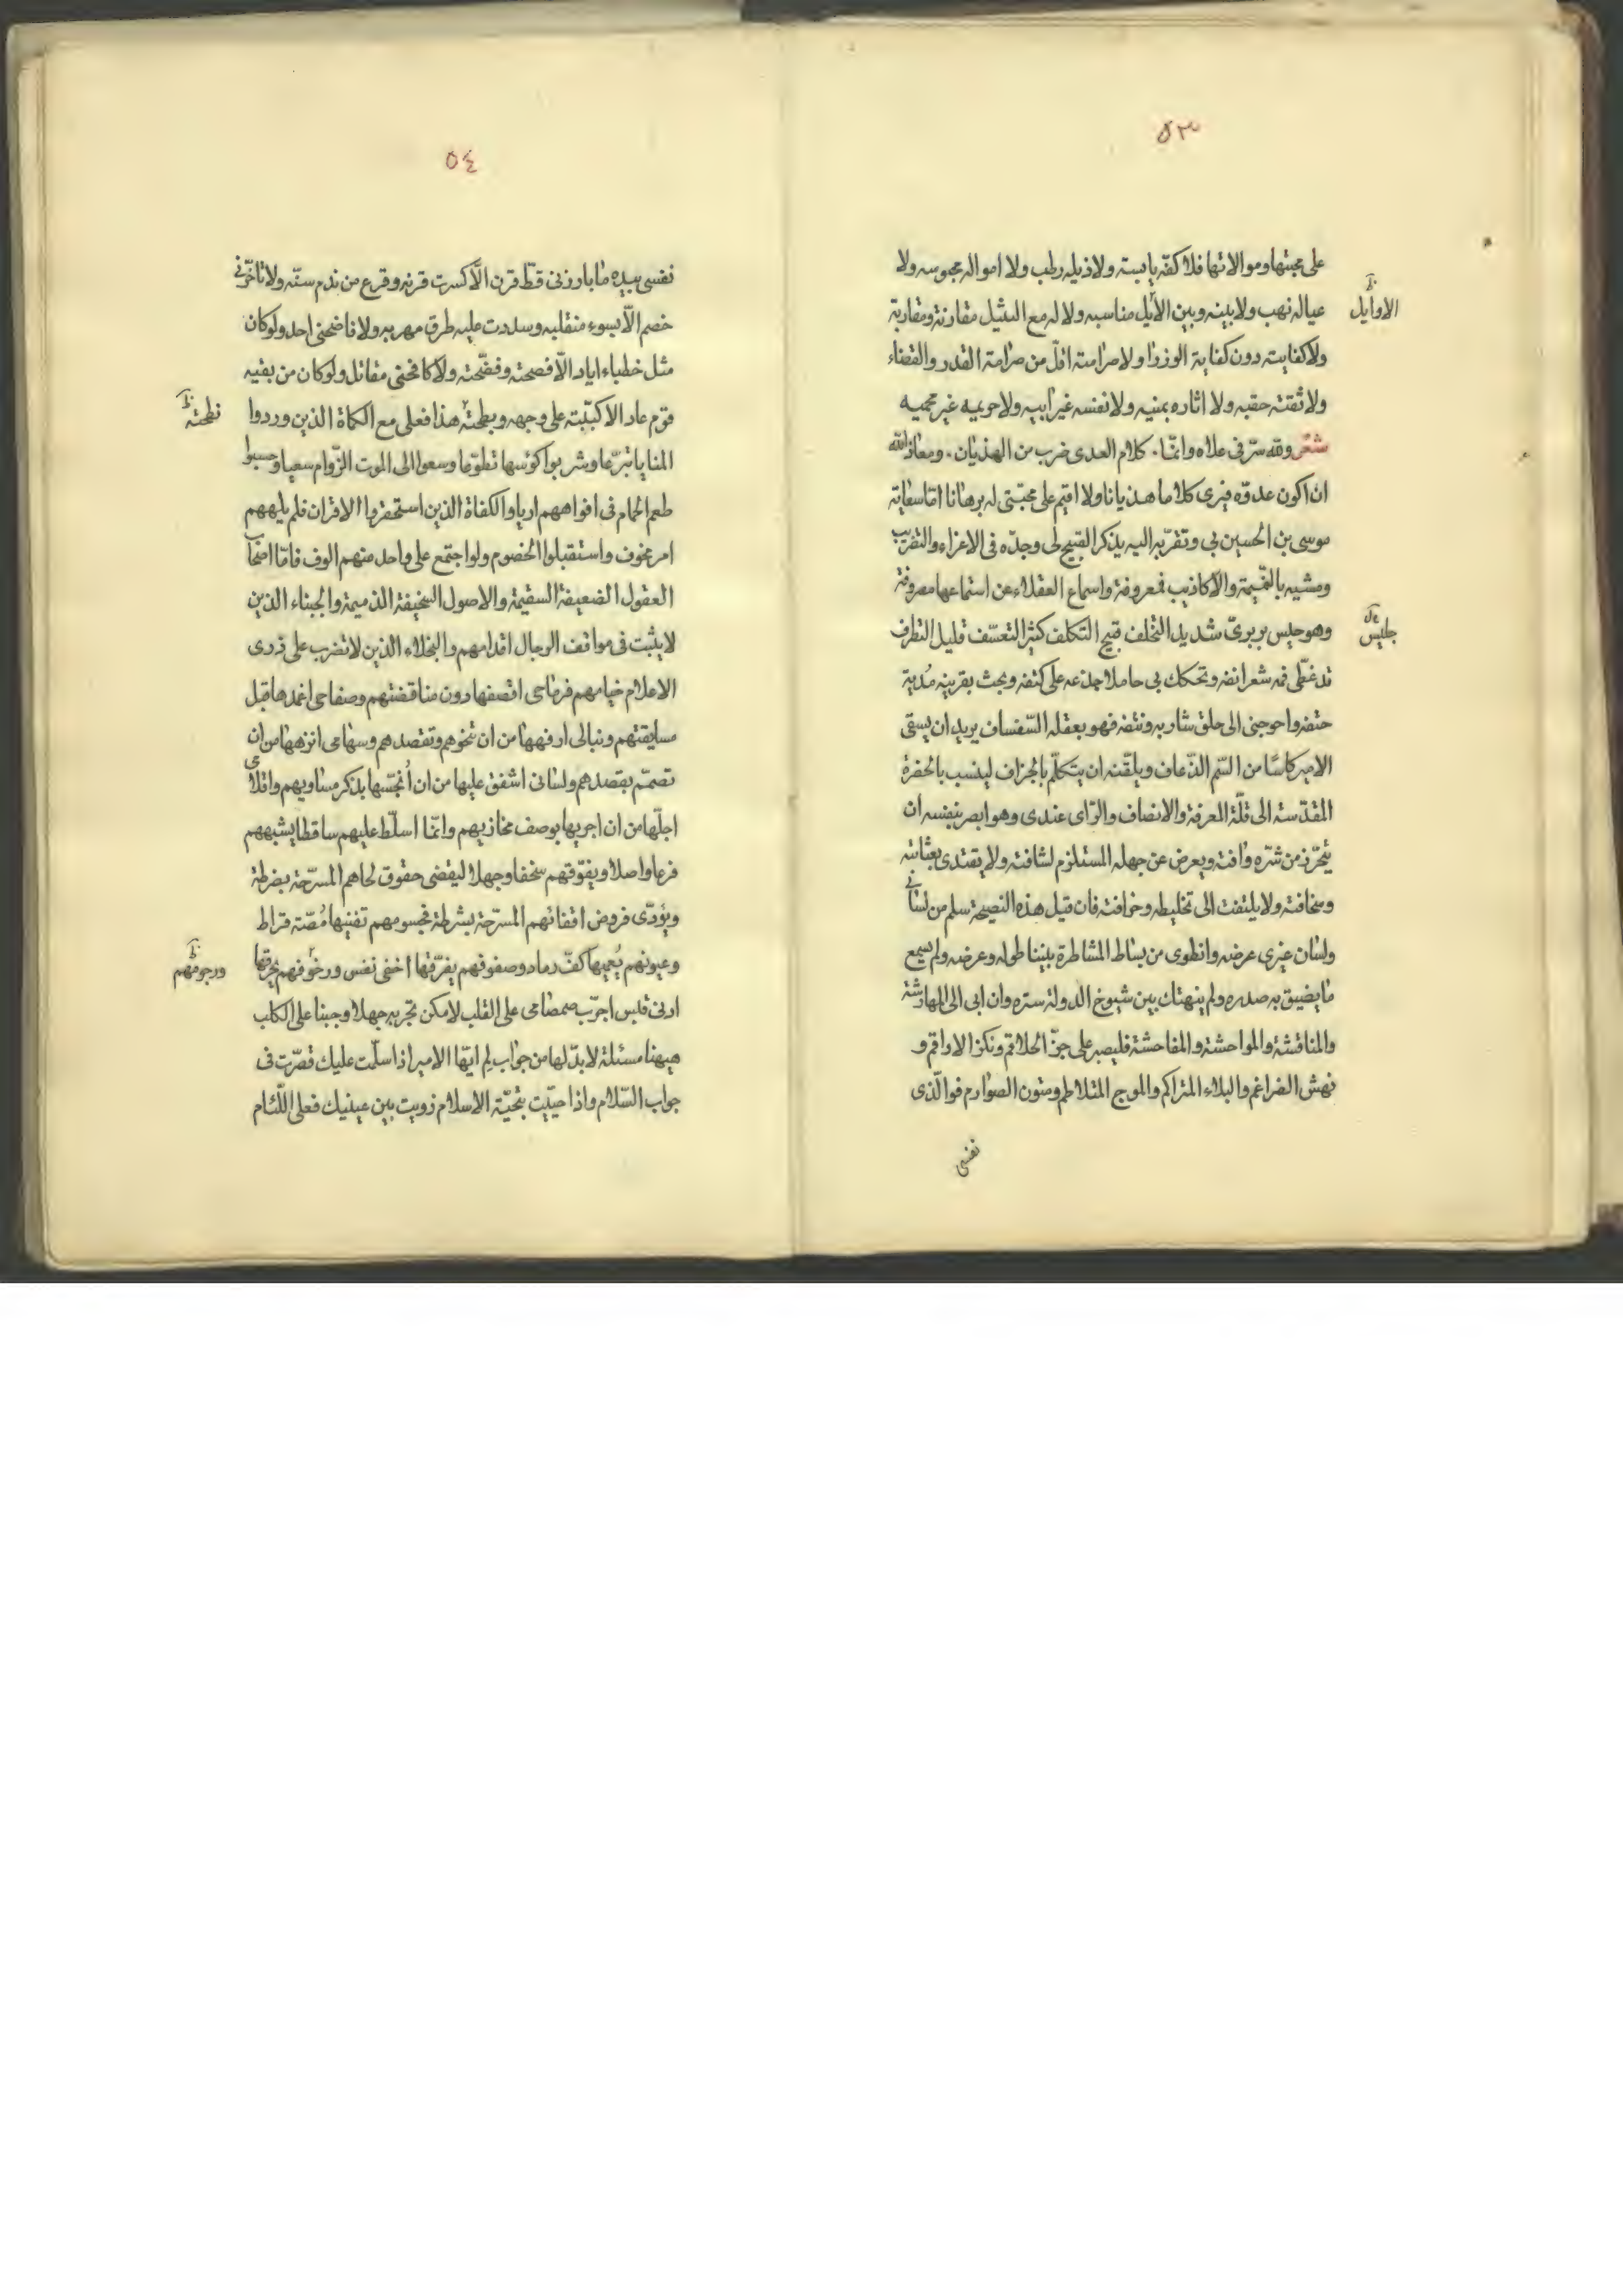 ٥٣
على محبتها وموالاتها فلا كفّه يابسة ولا ذيله رطب ولا امواله مجوسه ولا
عياله نهب ولا بينه وبين الأيل مناسبه ولا له مع الثيثل مقارنة ومقاربة
الاوايل
ولا كفايته دون كفاية الوزرا ولا صرامته اقلّ من صرامة القدر والقضاء
ولا ثقته حقبه ولا اثاره بمنيه ولا نفسه غير ابيه ولا حريمه غير محميه
شعر ولله سرّ فى علاه وانّما. كلام العدى ضرب من الهذيان. ومعاذ الله
ان اكون عدوّه فيرى كلاما هذيانا ولا اقيم على محبّتى له برهانا امّا سعاية
موسى بن الحسين بى وتقرّبه اليه بذكر القبيح لى وجدّه فى الاغراء والتضريب
ومشيه بالنّميمة والاكاذيب فمعروفة واسماع العقلاء عن استماعها مصروفة
وهو جليس بربرىّ شديد التخلف قبيح التكلف كثير التعسّف قليل التظرف
جليس
قد غطّى فمه شعر انفه وتحكك بى حاملا جذعه على كتفه وبحث بقرينه مُدية
حتفه واحوجنى الى حلق شاربه ونتفه فهو بعقله السّفساف يريد ان يسقى
الامير كاسًا من السّم الذّعاف ويلقّنه ان يتكلّم بالجزاف لينسب بالحضرة
المقدّسة الى قلّة المعرفة والانصاف والرّاى عندى وهو ابصر بنفسه ان
يتحرّز من شرّه وافته ويعرض عن جهله المستلزم لشافته ولا يقتدى بعثاثته
وسخافته ولا يلتفت الى تخليطه وخرافته فان قبل هذه النصيحة سلم من لسانى
ولسان غيرى عرضه وانطوى من بساط المشاطرة بيننا طوله وعرضه ولم يسمع
ما يضيق به صدره ولم ينهتك بين شيوخ الدولة ستره وان ابى الا المهارشة
والمناقشة والمواحشة والمفاحشة فليصبر على حزّ الحلاقم ونكز الاراقم و
نهش الضراغم والبلاء المتراكم والموج المتلاطم ومتون الصوارم فوالّذى
نفسى
٥٤
نفسى بيده ما بارزنى قطّ قرن الّا كسرت قرنه وقرع من ندم سنّه ولا ناخرنى
خصم الّا بسوء منقلبه وسددت عليه طرق مهربه ولا ناضحنى احد ولو كان
مثل خطباء اياد الّا فصحته وفضّحته ولا كافحنى مقاتل ولو كان من بقيه
قوم عاد الا كببّته على وجهه وبطحته هذا فعلى مع الكماة الذين وردوا
نطحته
المنايا تبرّعا وشربوا كؤسها تطوّعا وسعوا الى الموت الزّوام سعيا وحسبوا
طعم الحمام فى افواههم اريا والكفاة الذين استحقروا الاقران فلم يلههم
امر مخوف واستقبلوا الخصوم ولو اجتمع على واحد منهم الوف فامّا اصحاب
العقول الضعيفة السقيمة والاصول السخيفة الذميمة والجبناء الذين
لا يثبت فى مواقف الرجال اقدامهم والبخلاء الذين لا تضرب على ذرى
الاعلام خيامهم فرماحى اقصفها دون مناقضتهم وصفاحى اغمدها قبل
مسابقتهم ونبالى ارفهها من ان تنحوهم وتقصدهم وسهامى انزهها من ان
تصمّم بقصدهم ولسانى اشفق عليها من ان اُنجّسها بذكر مساويهم واقلامى
اجلّها من ان اجريها بوصف مخازيهم وانّما اسلّط عليهم ساقطا يشبههم
فرعا واصلا ويفوّقهم سخفا وجهلا ليقضى حقوق لحاهم المسرّحة بضرطة
ويؤدّى فروض اقفائهم المسرّحة بشرطة فجسومهم تفنيها مُصّة قراط
وعيونهم يُعميها كفّ رماد وصفوفهم يفرّقها اخفى نفس ورخوفهم يخرقها
ورجومهم
ادنى قبس اجرّب صمصامى على القلب لا مكن تجربه جهلا وجبنا على الكلب
هيهنا مسئلة لا بدّ لها من جواب لِم ايّها الامير اذا سلّمت عليك قصّرت فى
جواب السّلام واذا حيّيت بتحيّة الاسلام زويت بين عينيك فعلى اللّئام